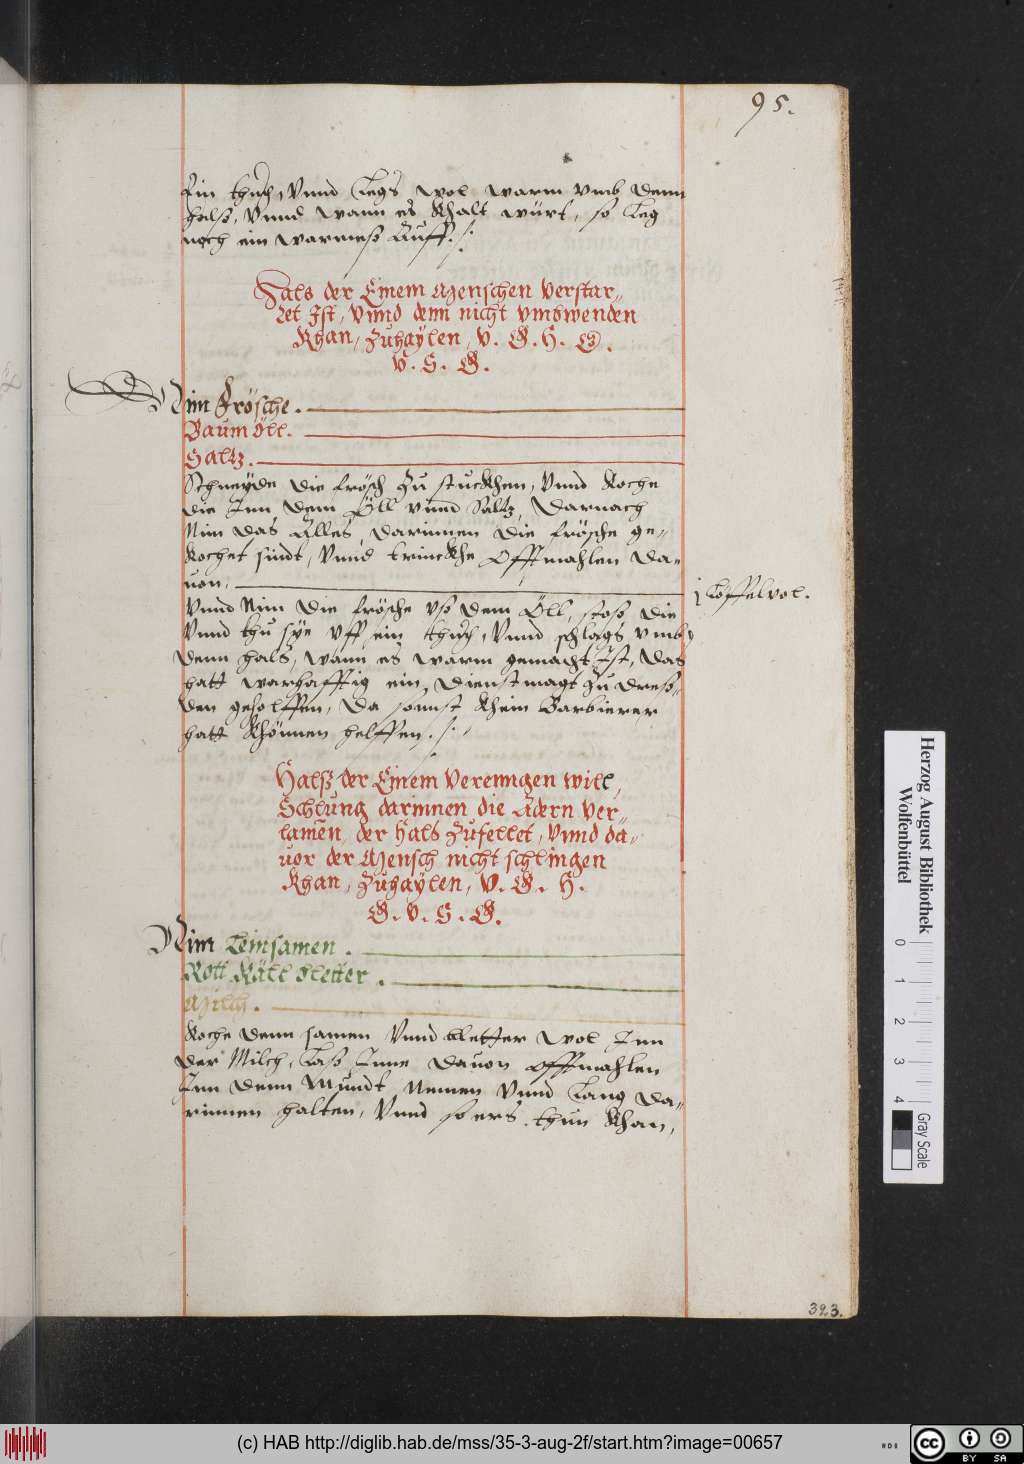 95.
Ein thuch, Vnnd Legs wol warm vmb denn
halß, Vnnd wann es Khalt würt, so Leg
noch ein warmeß Auff ./.
Hals der Einem Menschen verstar„
ret Ist, Vnnd denn nicht vmbwenden
Khan, Zuhaÿlen, V. G. H. G.
V. S. G.
Nim Frösche.
Baumöll.
Saltz.
Schneyde die frösch Zu stuckhen, Vnnd Koche
die Inn dem Öll vnnd Saltz, Darnach
Nim das Alles, darinnen die frösche ge„
Kochet sindt, Vnnd trinckhe Offtmahlen Da„
uon.
j Löffelvol.
Vnnd Nim die frösche vß dem Öll, stoß die
Vnnd thu sye vff ein thuch, Vnnd schlags vmb
denn halß, wann es warm gemacht Ist, Das
hatt warhafftig ein Dienstmagt Zu Dreß„
den geholffen, Da sonnst Khein Barbierer
hatt Khönnen helffen ./.
Halß der Einem Verennigen will,
Schlung darinnen die Adern ver„
lamen, der Hals Zufellet, Vnnd da„
uor der Mensch nicht schlingen
Khan, Zuhaÿlen, V. G. H.
G. V. S. G.
Nim Leinsamen.
Rott Köll Bletter.
Milch.
Koche denn samen Vnnd bletter wol Inn
der Milch, Laß Inne dauon offtmahlen
Inn denn Mundt Nemen Vnnd Lang da„
rinnen halten, Vnnd so ers thun Khan,
323.
Herzog August Bibliothek
Wolfenbüttel
0 1 2 3 4
Gray Scale
(c) HAB http://diglib.hab.de/mss/35-3-aug-2f/start.htm?image=00657
cc BY SA